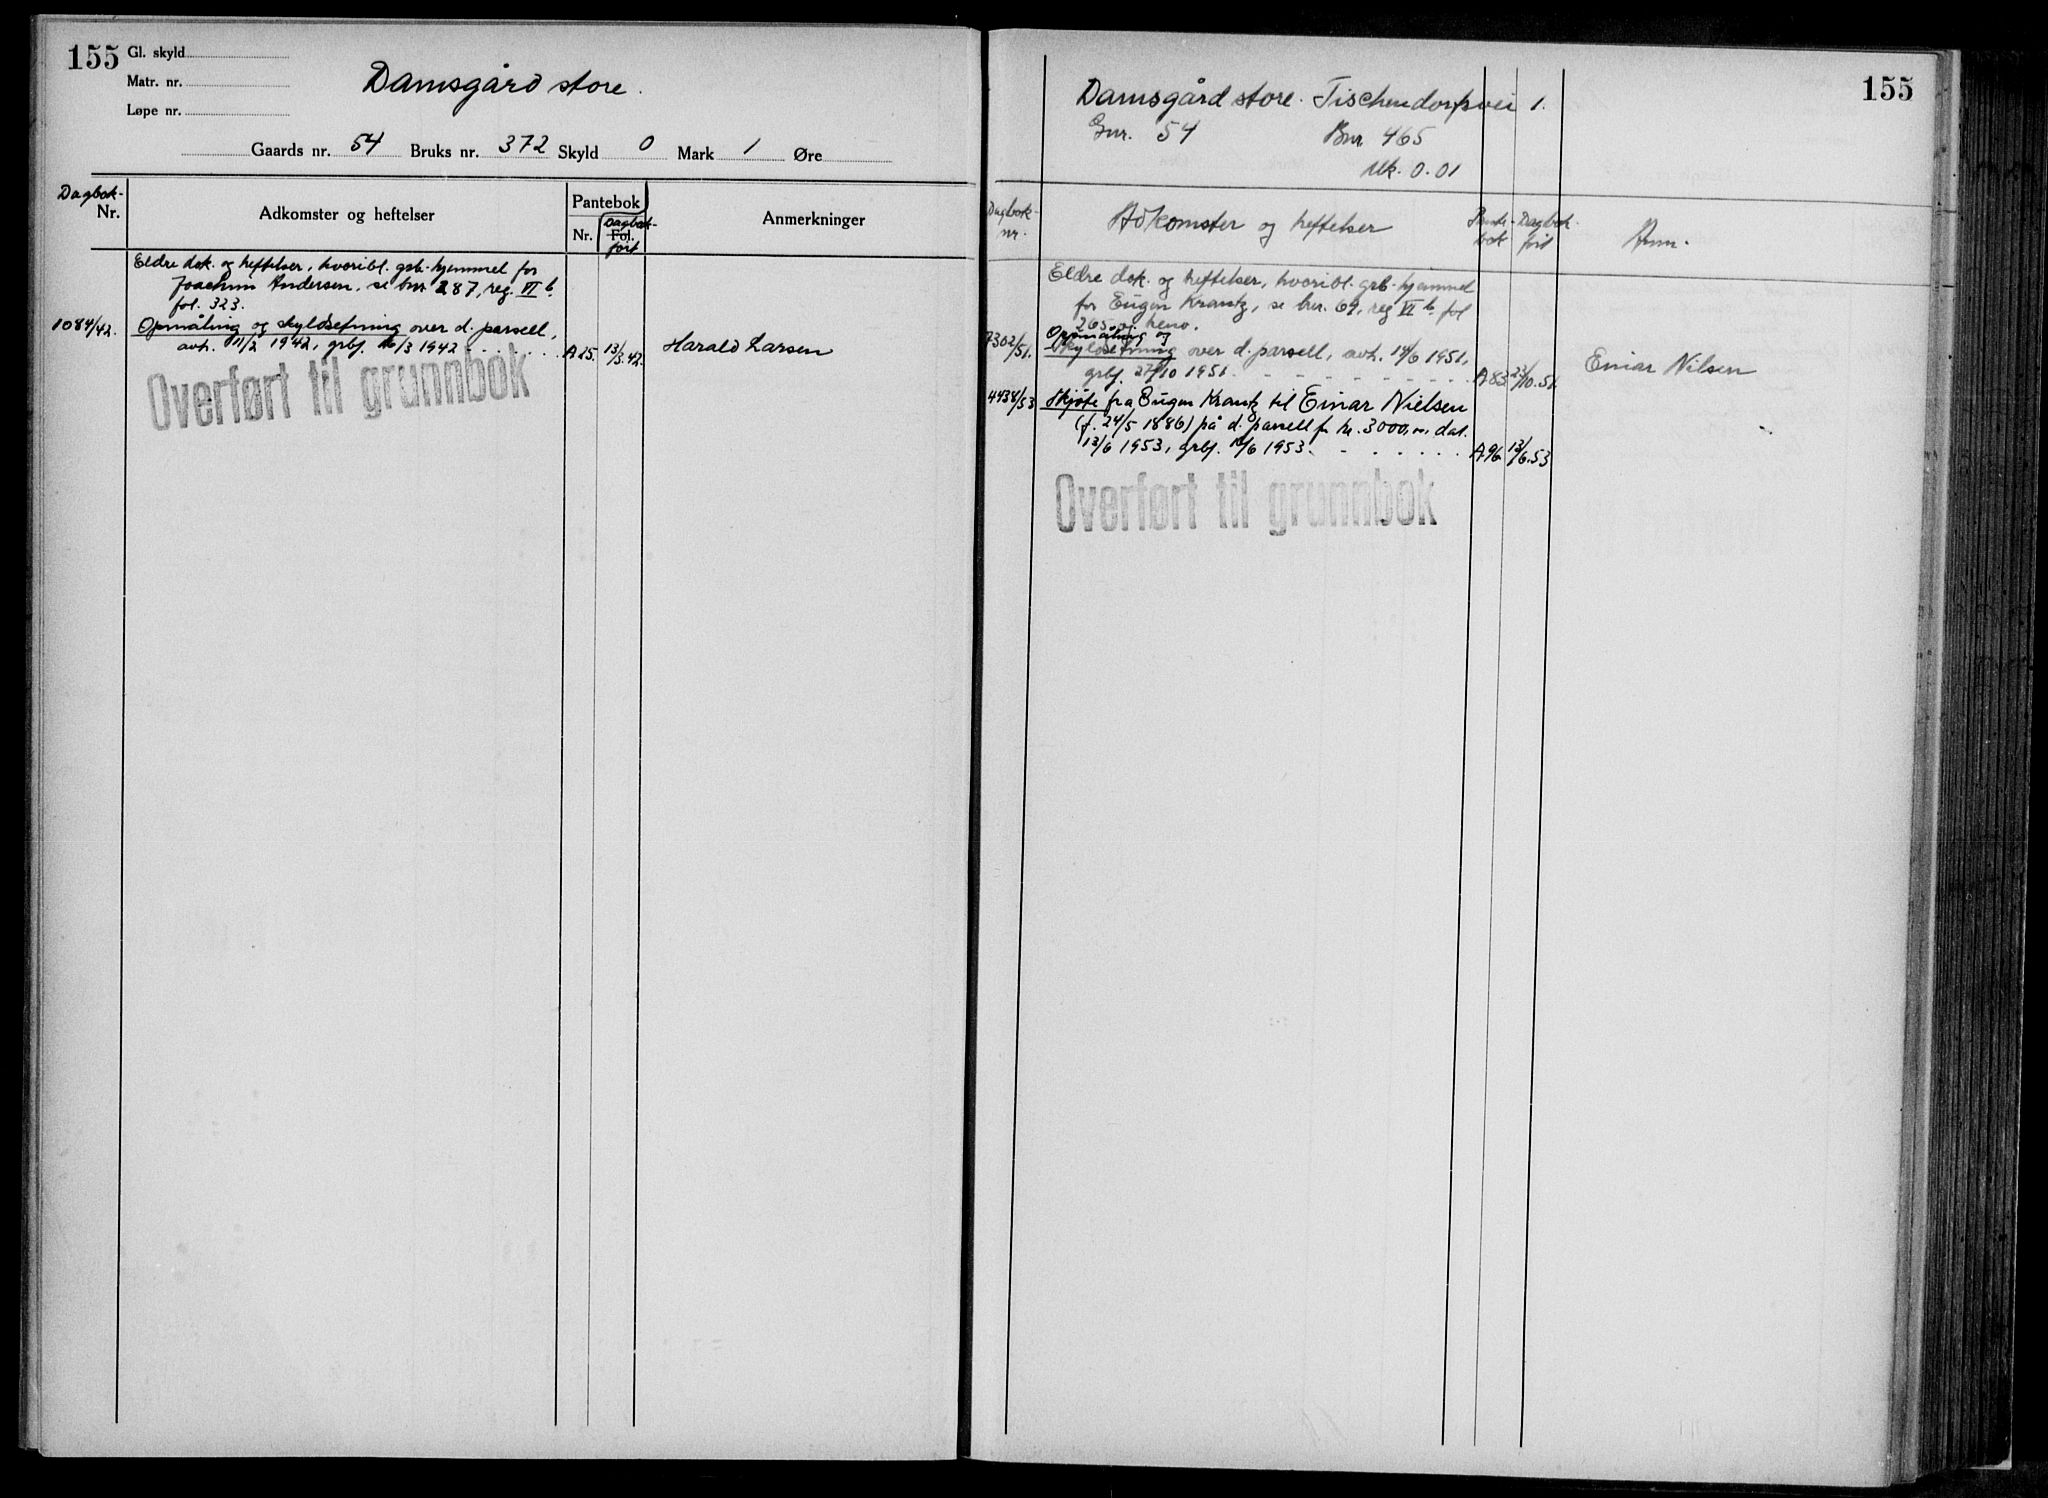 155
Gl. skyld
Matr. nr.
Løpe nr.
Damsgård store.
Gaards nr. 54 Bruks nr. 372 Skyld 0 Mark 1 Øre
Dagbok-
Nr.
Adkomster og heftelser
Pantebok
Nr.
Fol.
Dagbok-
ført
Anmerkninger
Eldre dok. og heftelser, hvoribl. grb.-hjemmel for
Joachim Andersen, se bnr 287, reg. VI b.
fol. 323.
1084/42. Opmåling og skyldsetning over d. parsell,
avh. 11/2 1942, grbf. /3 1942 A25. 13/3.42. Harald Larsen
Overført til grunnbok
155
Damsgård store. Tischendorfsvei 1.
Gnr. 54 Bnr 465
Mk. 0.01
Dagbok-
nr.
Adkomster og heftelser
Pante-
bok
Dagbok-
ført
Anm.
Eldre dok. og heftelser, hvoribl. grb-hjemmel
for Eugen Krantz, se bnr. 69, reg VI b. fol
265 og henv.
7302/51. Oppmåling og
Skyldsetning over d. parsell, avh. 14/6 1951,
grbf. 27/10 1951. A83 23/10.51. Einar Nilsen
4438/53 Skjøte fra Eugen Krantz til Einar Nielsen
(f. 24/5 1886) på d. parsell for kr. 3000,00, dat.
12/6 1953, grbf. /6 1953. A96 13/6.53
Overført til grunnbok